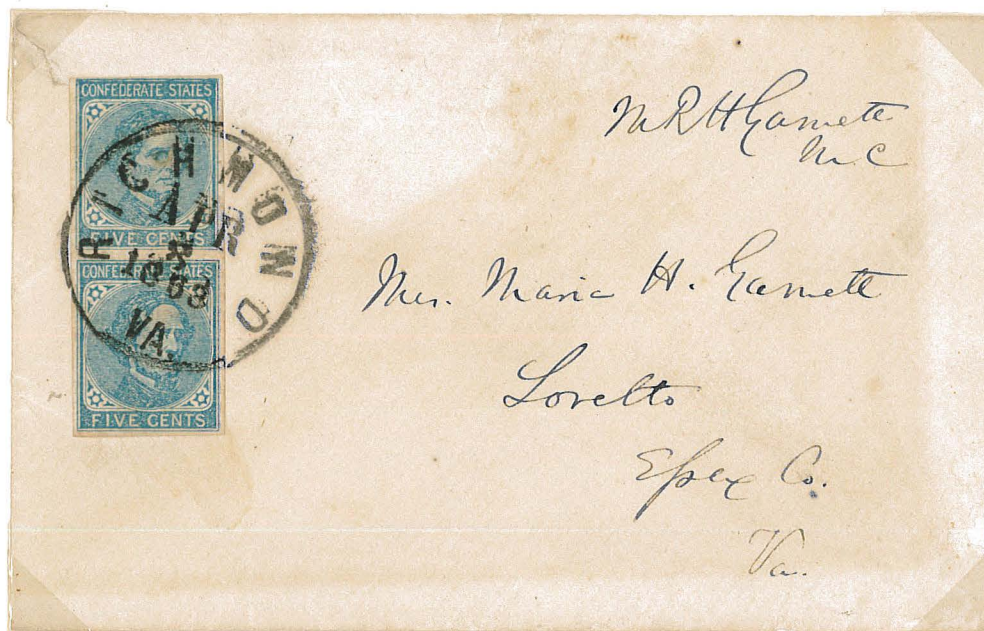 CONFEDERATE STATES
FIVE CENTS
CONFEDERATE STATES
FIVE CENTS
RICHMOND
APR
8
1863
VA.
M R H Garnett
M C
Mrs. Maria H. Garnett
Loretto
Essex Co.
Va.